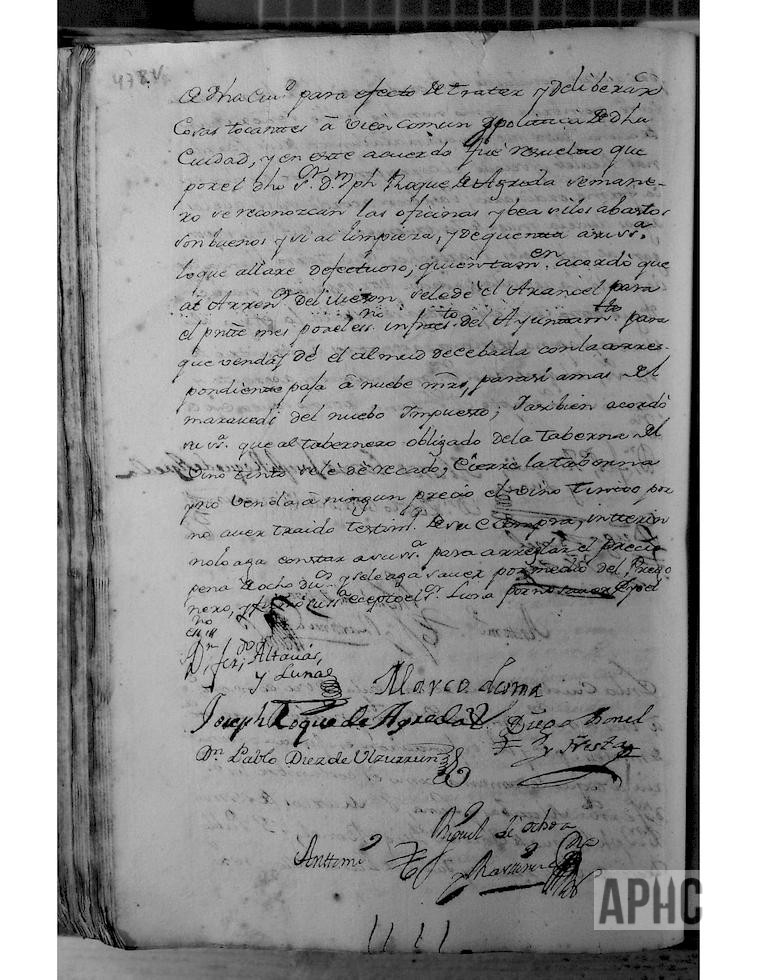 438V
a dha Ciu.d para efecto de tratar y deliberar
Cosas tocantes â vien comun y politica de dha
Cuidad, y en este acuerdo fue resuelto que
por el dho S.r D.n Jph Roque de Agreda semane-
ro se reconozcan las oficinas y bea si los abastos
son buenos y si ai limpieza, y de quenta a su ss.a
lo que allare defectuoso, quien tam.en acordò que
al Arren.or del meson se le dè el Arancel para
el pnte mes por el ess.no infrasc.to del Ayuntam.to para
que venda y dè el almud de cebada con la corres-
pondiente paja â nuebe mrs, para si a mas del
maravedi del nuebo Impuesto; Tanbien acordò
su ss.a que al tabernero obligado de la taberna del
Vino tinto se le de recado, Cierre la taberna
y no venda â ningun precio el vino tinto por
no auer traido testim.o de su Compra, interin
no lo aga constar a su ss.a para arreglar el precio
pena de ocho du.s y se le aga sauer por medio del Prego
nero, y firmò su ss.a ecepto el S.r Luna por no sauer
D.n fer.do Altauàs
y Luna
Marco Lesma
Joseph Roque de Agreda
Diego Bonel
y
D.n Pablo Diez de Ulzurrun
Miguel de Ochoa
Anttemi
y Martinez
APHC